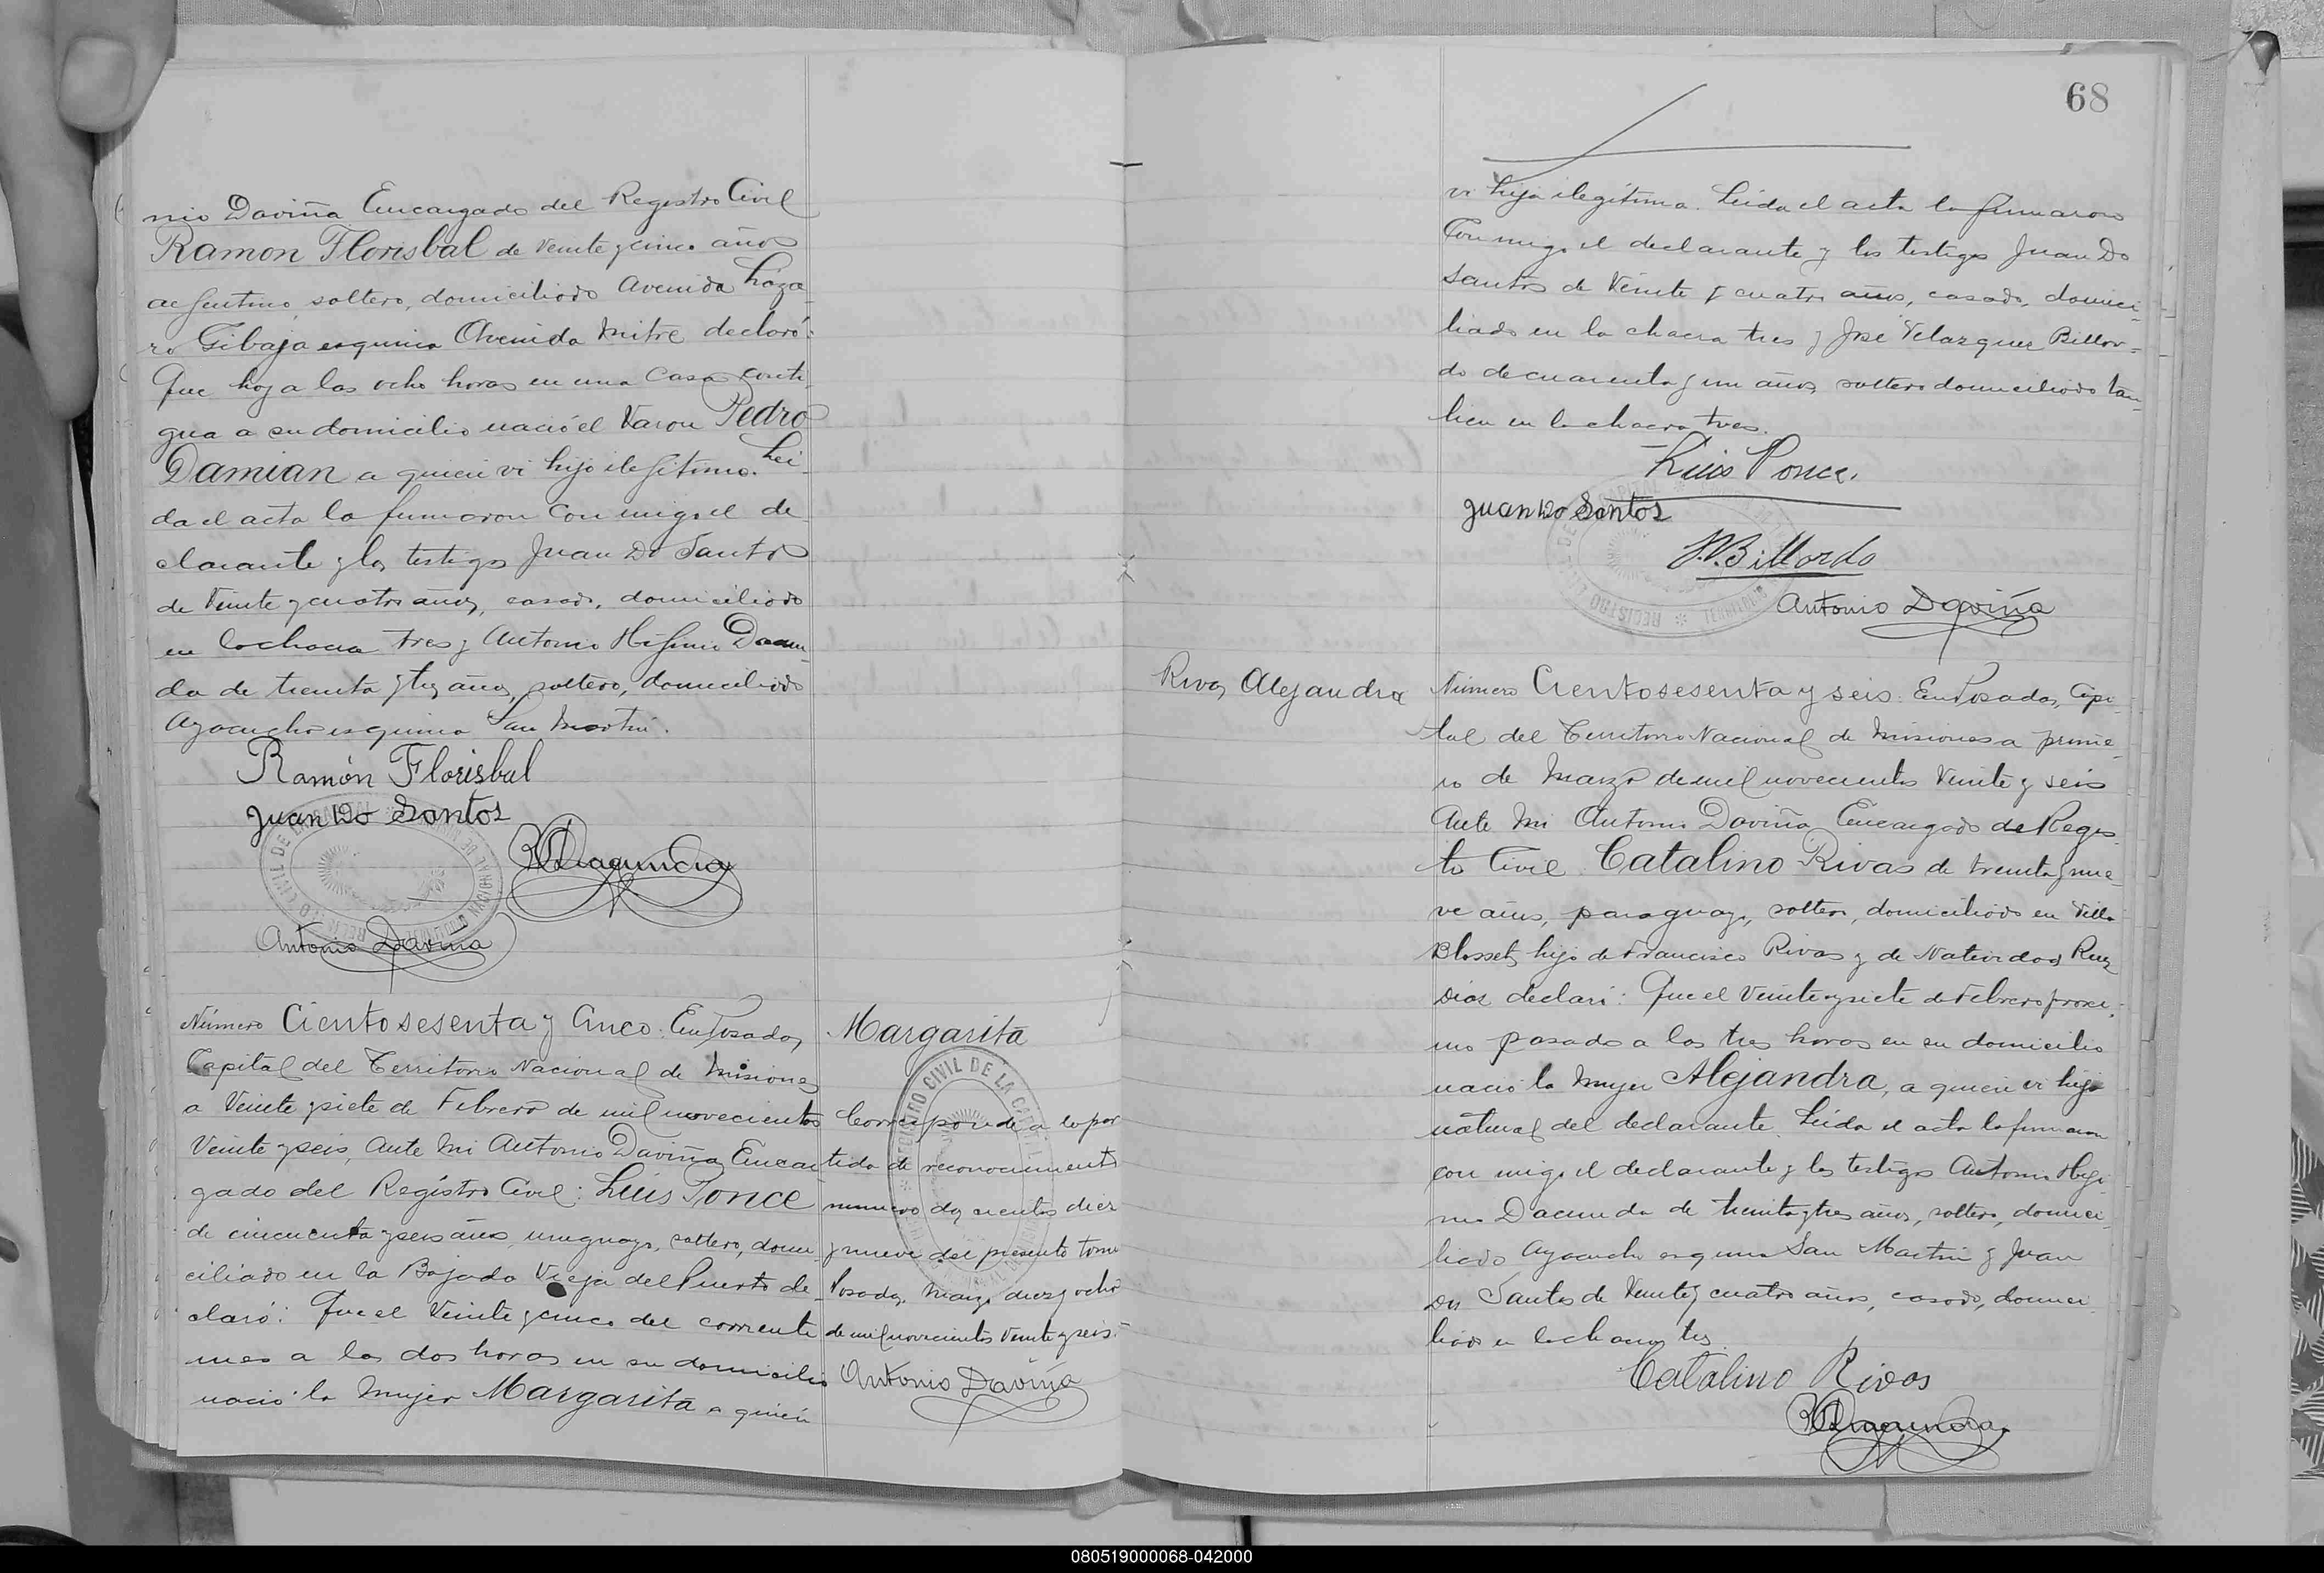 nio Daviña Encargado del Registro Civil
Ramon Florisbal de veinte y cinco años
argentino, soltero, domiciliado Avenida Láza-
ro Gibaja esquina Avenida Mitre declaró:
Que hoy a las ocho horas en una Casa conti-
gua a su domicilio nació el Varon Pedro
Damian a quien vi hijo ilegítimo. Leí-
da el acta la firmaron conmigo el de-
clarante y los testigos Juan Do Santos
de Veinte y cuatro años, casado, domiciliado
en la chacra tres y Antonio Higinio Dacun-
da de treinta y tres años, soltero, domiciliado
Ayacucho esquina San Martin.
Ramón Florisbal
Juan Do Santos
Antonio Daviña
Número Ciento sesenta y Cinco: En Posadas,
Capital del Territorio Nacional de Misiones
a Veinte y siete de Febrero de mil novecientos
Veinte y seis, Ante Mi Antonio Daviña Encar-
gado del Registro Civil: Luis Ponce
de cincuenta y seis años, uruguayo, soltero, domi-
ciliado en la Bajada Vieja del Puerto de-
claró: Que el Veinte y cinco del corriente
mes a las dos horas en su domicilio
nació la Mujer Margarita a quien
Margarita
Corresponde a la par
tida de reconocimiento
número doscientos diez
y nueve del presente tomo
Posadas, Marzo diez y ocho
de mil novecientos veinte y seis.
Antonio Daviña
68
vi hija ilegítima. Leida el acta la firmaron
Conmigo el declarante y los testigos Juan Do
Santos de Veinte y cuatro años, casado, domici-
liado en la chacra tres y José Velazquez Billor-
do de cuarenta y un años, soltero domiciliado tam-
bien en la chacra tres.
Luis Ponce.
Juan Do Santos
J.V. Billordo
Antonio Daviña
Rivas Alejandra
Número Ciento sesenta y seis: En Posadas, Capi-
tal del Territorio Nacional de Misiones a prime-
ro de Marzo de mil novecientos Veinte y seis
Ante Mi Antonio Daviña Encargado de Regis-
tro Civil Catalino Rivas de treinta y nue-
ve años, paraguayo, soltero, domiciliado en Villa
Blosset, hijo de Francisco Rivas y de Natividad Ruiz
Diaz declaró: Que el Veinte y siete de Febrero proxi-
mo pasado a las tres horas en su domicilio
nació la Mujer Alejandra, a quien vi hija
natural del declarante. Leida el acta la firmaron
con migo el declarante y los testigos Antonio Higi-
nio Dacunda de treinta y tres años, soltero, domici-
liado Ayacucho esquina San Martin y Juan
Do Santos de Veinte y cuatro años, casado, domici-
liado en la chacra tres.
Catalino Rivas
080519000068-042000